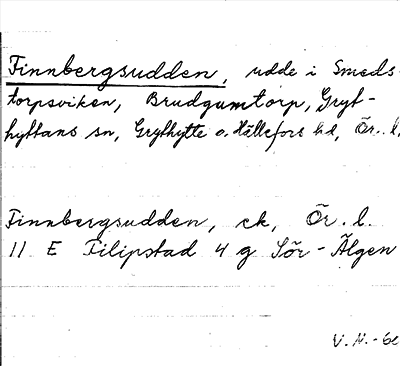 Finnbergsudden, udde i Smeds-
torpsviken, Brudgumtorp, Gryt-
hyttans sn, Grythytte o. Hällefors bl, Ör. l.
Finnbergsudden, ek, Ör. l.
11 E Filipstad 4 g Sör-Älgen
V.N.-60